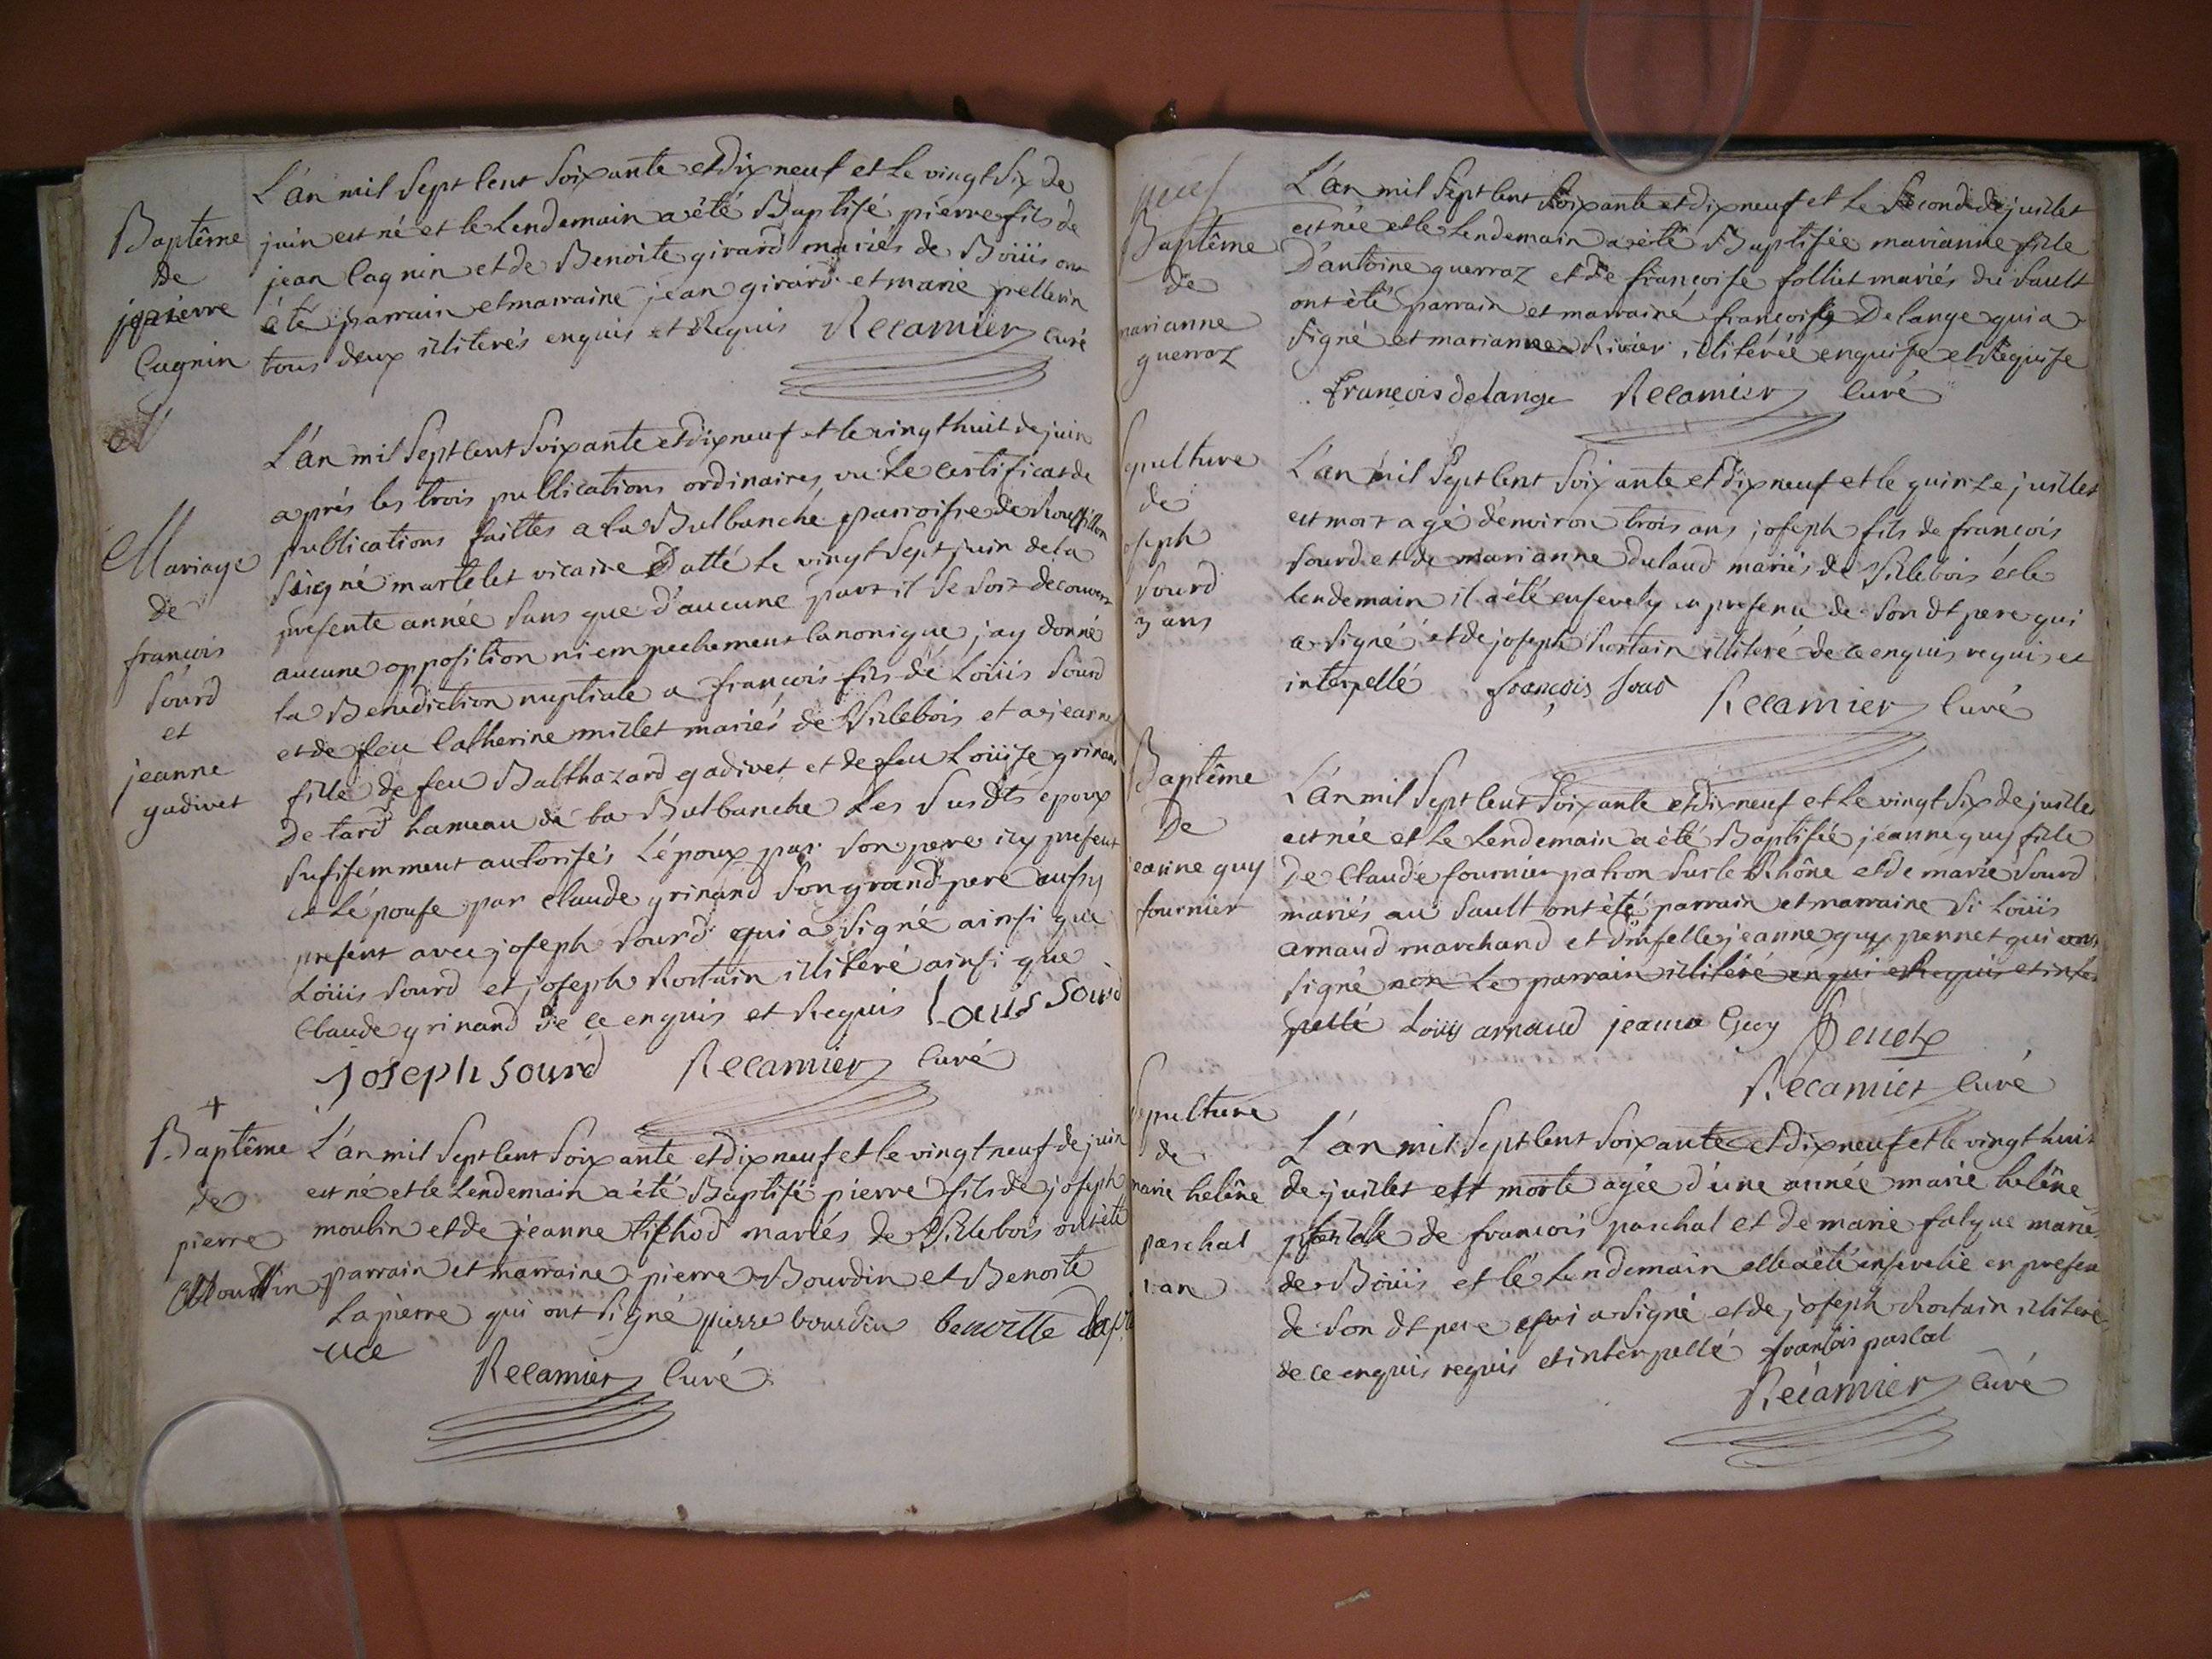 Baptême
de
pierre
Cagnin
L'an mil Sept Cent Soixante et dix neuf et Le vingt Six de
juin est né et le Lendemain a été Baptisé pierre fils de
jean Cagnin et de Benoite girard mariés de Boüis ont
été parrain et marraine jean girard et marie pellerin
tous deux illiterés enquis et Requis Recamier Curé
Mariage
de
francois
Sourd
et
jeanne
gadivet
L'an mil Sept Cent Soixante et dix neuf et le vingt huit de juin
aprés les trois publications ordinaires, vu Le certificat de
publications faittes a la Bulbanche paroisse de Roussillon
Signé martelet vicaire Datté Le vingt Sept juin de la
presente année Sans que d'aucune part il Se Soit decouvert
aucune opposition ni empechement Canonique, jay donné
la Benediction nuptiale a françois fils de Loüis Sourd
et de feu Catherine millet mariés de Villebois et a jeanne
fille de feu Balthazard gadivet et de feu Loüise grinand
de tard hameau de la Bulbanche Les Susdts epoux
Sufisemment autorisés L'époux par Son pere icy present
et L'épouse par Claude grinand Son grand pere aussy
present avec joseph Sourd qui a Signé ainsi que
Loüis Sourd et joseph Rostain illiteré ainsi que
Claude grinand de ce enquis et Requis Louis Sourd
joseph Sourd Recamier Curé
+
Baptême
de
pierre
Mourllin
L'an mil Sept Cent Soixante et dix neuf et le vingt neuf de juin
est né et le Lendemain a été Baptisé pierre fils de joseph
moulin et de jeanne tiphod mariés de Villebois ont été
parrain et marraine pierre Bourdin et Benoite
Lapierre qui ont Signé pierre bourdin benoitte Lapi
Recamier Curé
Baptême
de
marianne
guerraz
L'an mil Sept Cent Soixante et dix neuf et Le Second de juillet
est née et le Lendemain a été Baptisée marianne fille
D'antoine guerraz et de françoise folliet mariés du Sault
ont été parrain et marraine françois Delange qui a
Signé et marianne Rivier illiterée enquise et Requise
francois delange Recamier Curé
Sepulture
de
joseph
Sourd
3 ans
L'an mil Sept Cent Soixante et dix neuf et le quinze juillet
est mort agé d'environ trois ans joseph fils de francois
Sourd et de marianne dulaud mariés de Villebois et le
Lendemain il a été ensevely en presence de Son dt pere qui
a Signé et de joseph Rostain illiteré de ce enquis requis et
interpellé françois Sour Recamier Curé
Baptême
De
jeanne guy
fournier
L'an mil Sept Cent Soixante et dix neuf et Le vingt Six de juillet
est née et Le Lendemain a été Baptisée jeanne guy fille
De Claude fournier patron Sur le Rhône et de marie Sourd
mariés au Sault ont été parrain et marraine Sr Loüis
arnaud marchand et dmselle jeanne guy pennet qui ont
Signé non Le parrain illiteré enqui et Requis et inter
pellé Loüis arnaud jeanne Guy Penet
Recamier Curé
Sepulture
de
marie helêne
paschal
1 an
L'an mil Sept Cent Soixante et dix neuf et le vingt huit
de juillet est morte agée d'une année marie helêne
fille de francois paschal et de marie falque mariés
de Boüis et le Lendemain elle a été ensevelie en presence
de Son dt pere qui a Signé et de joseph Rostain illiteré
de ce enquis requis et interpellé francois pascal
Recamier Curé